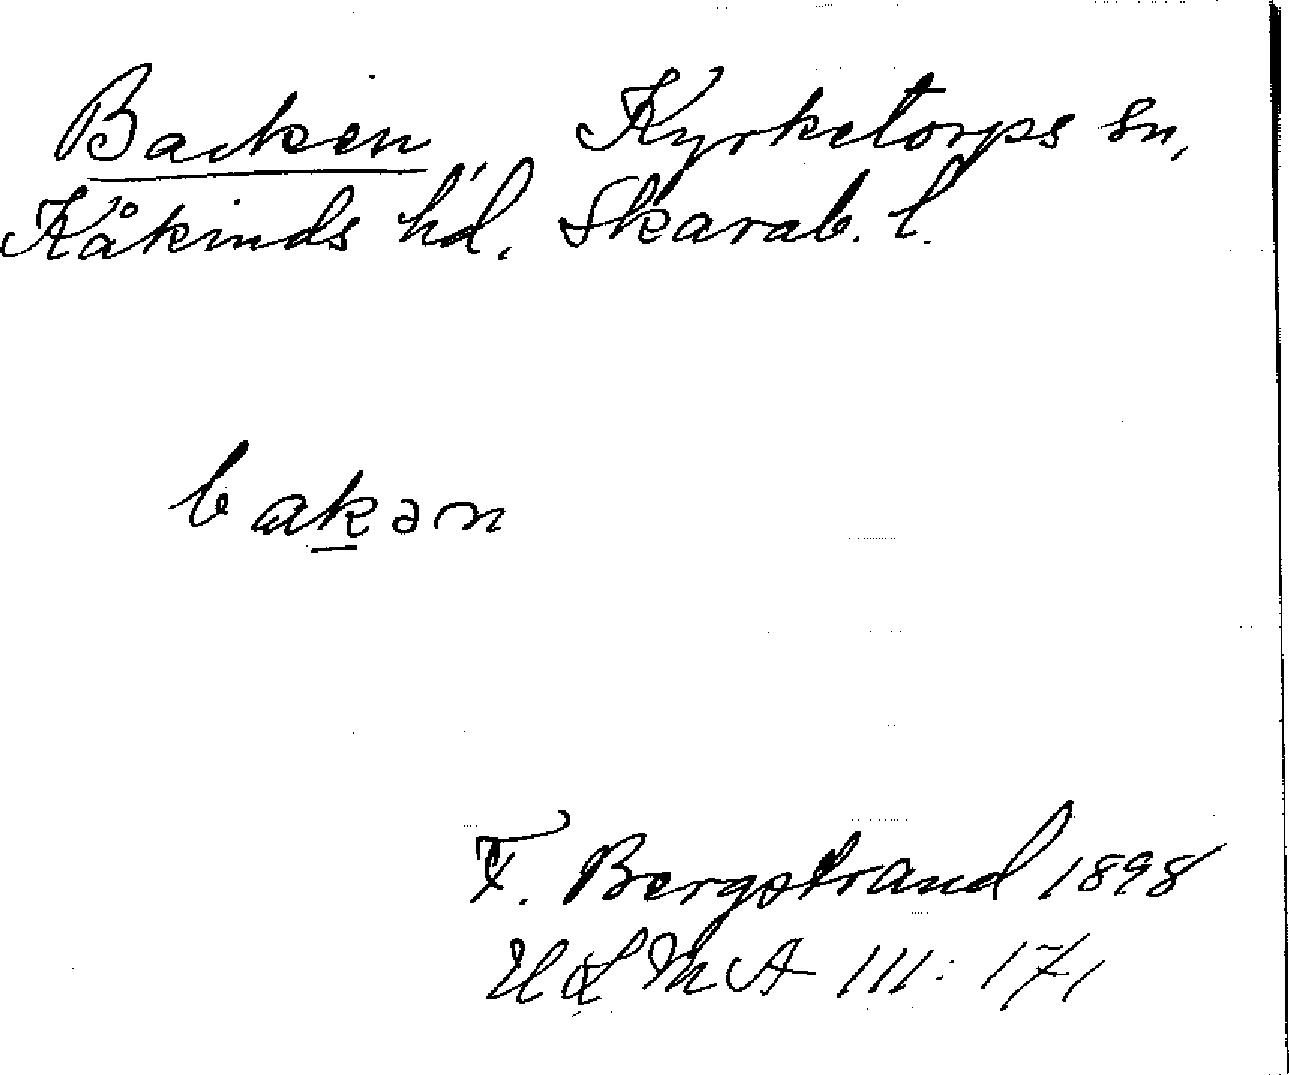 Backen Kyrketorps sn,
Kåkinds hd. Skarab. l.
bakən
F. Bergstrand 1898
ULMA 111: 17,